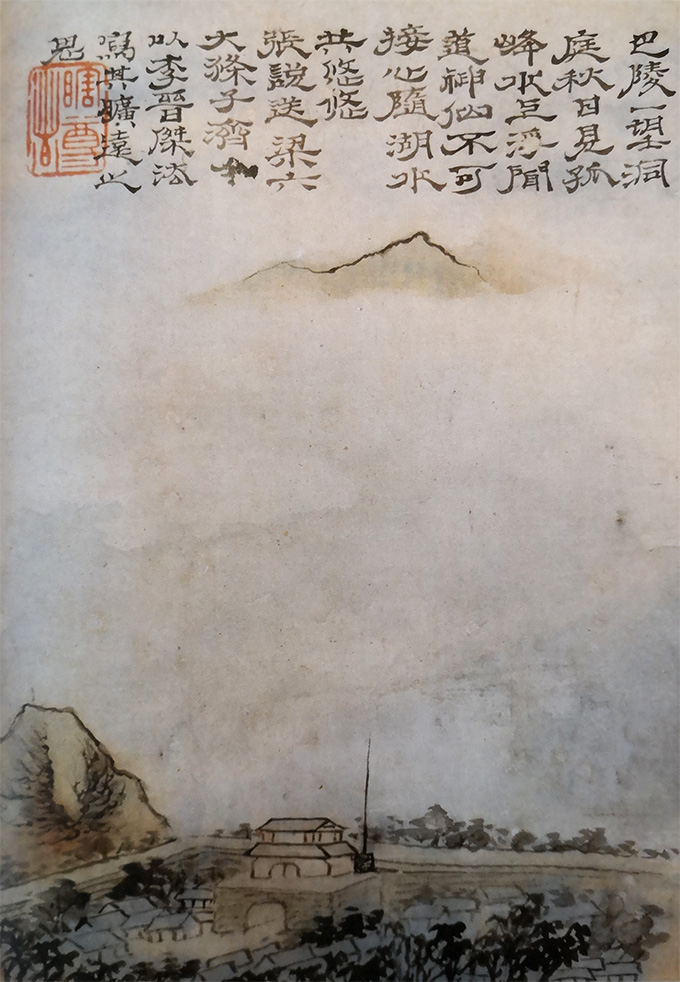 巴陵一望洞
庭秋日見孤
峰水上浮聞
道神仙不可
接心隨湖水
共悠悠
張說送梁六
大滌子濟
以李晉傑法
寫其曠遠之
思
瞎尊